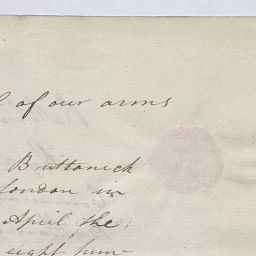 of our arms
Buttanick
London in
April the
eight hun-